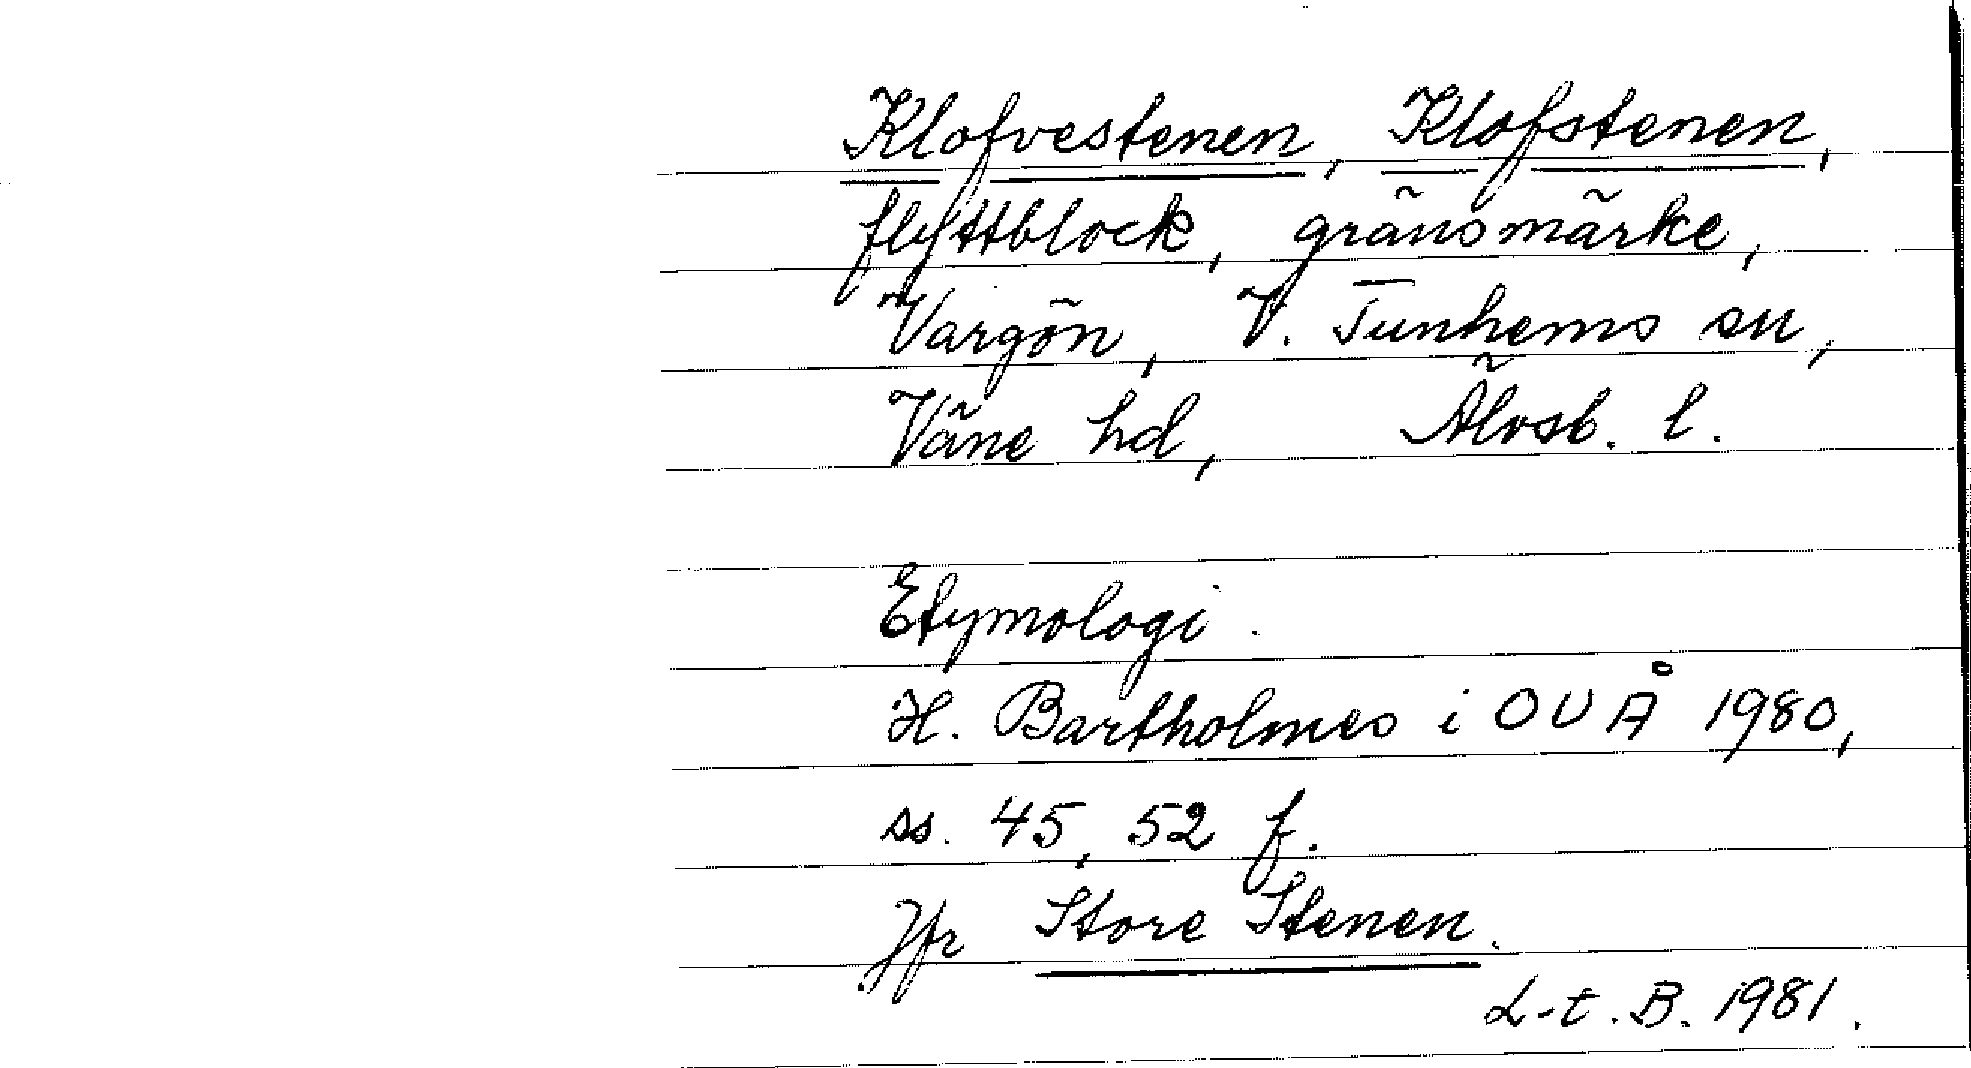 Klofvestenen, Klofstenen,
flyttblock, gränsmärke,
Vargön, V. Tunhems sn,
Väne hd, Älvsb. l.
Etymologi.
H. Bartholmes i OUÅ 1980,
ss. 45, 52 f.
Jfr Store Stenen.
L-t. B. 1981.